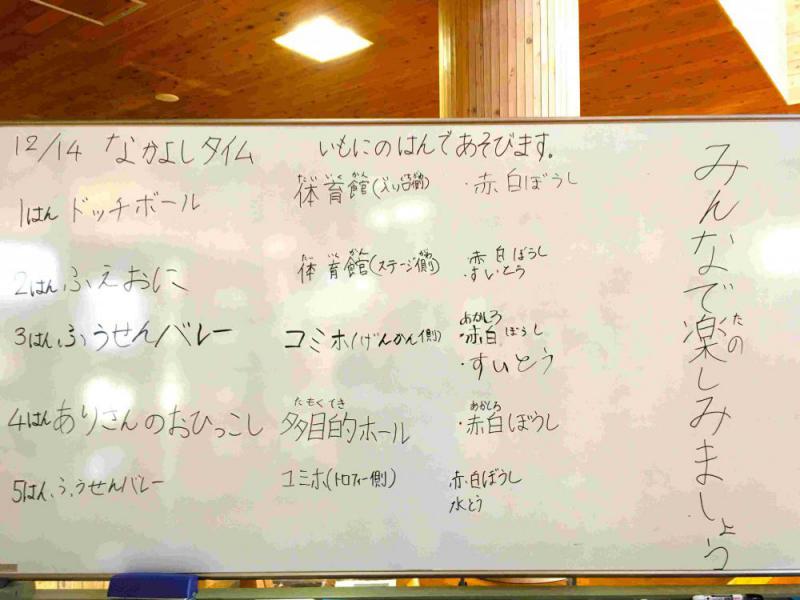 12/14 なかよしタイム いもにのはんであそびます。
1はん ドッチボール 体育館(入り口側) ・赤白ぼうし
たいいくかん
2はん ふえおに 体育館(ステージ側) 赤白ぼうし
たいいくかん がわ
・すいとう
3はん ふうせんバレー コミホ(げんかん側) ・赤白ぼうし
あかしろ
・すいとう
4はん ありさんのおひっこし 多目的ホール ・赤白ぼうし
たもくてき あかしろ
5はん ふうせんバレー コミホ(トロフィー側) 赤白ぼうし
水とう
みんなで楽しみましょう
たの